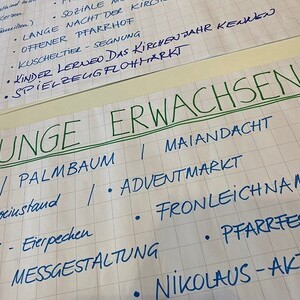 SOZIALE
• LANGE NACHT DER KIRCHEN
• OFFENER PFARRHOF
KUSCHELTIER-SEGNUNG
• KINDER LERNEN DAS KIRCHENJAHR KENNEN
• SPIELZEUGFLOHMARKT
UNGE ERWACHSEN
/ PALMBAUM / MAIANDACHT
einstand / • ADVENTMARKT
- Eierpecken • FRONLEICHNAM
MESSGESTALTUNG • PFARRFE
• NIKOLAUS-AKT